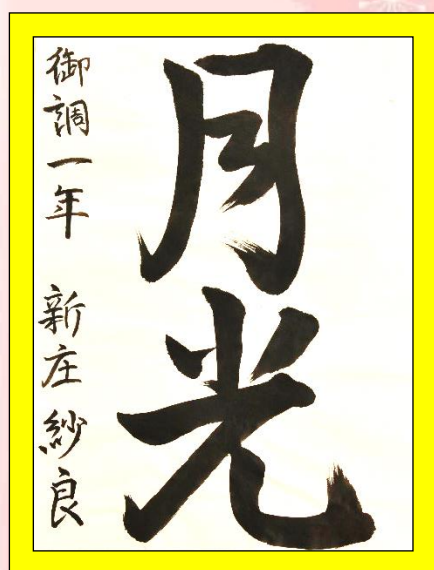 月光
御調一年 新庄紗良